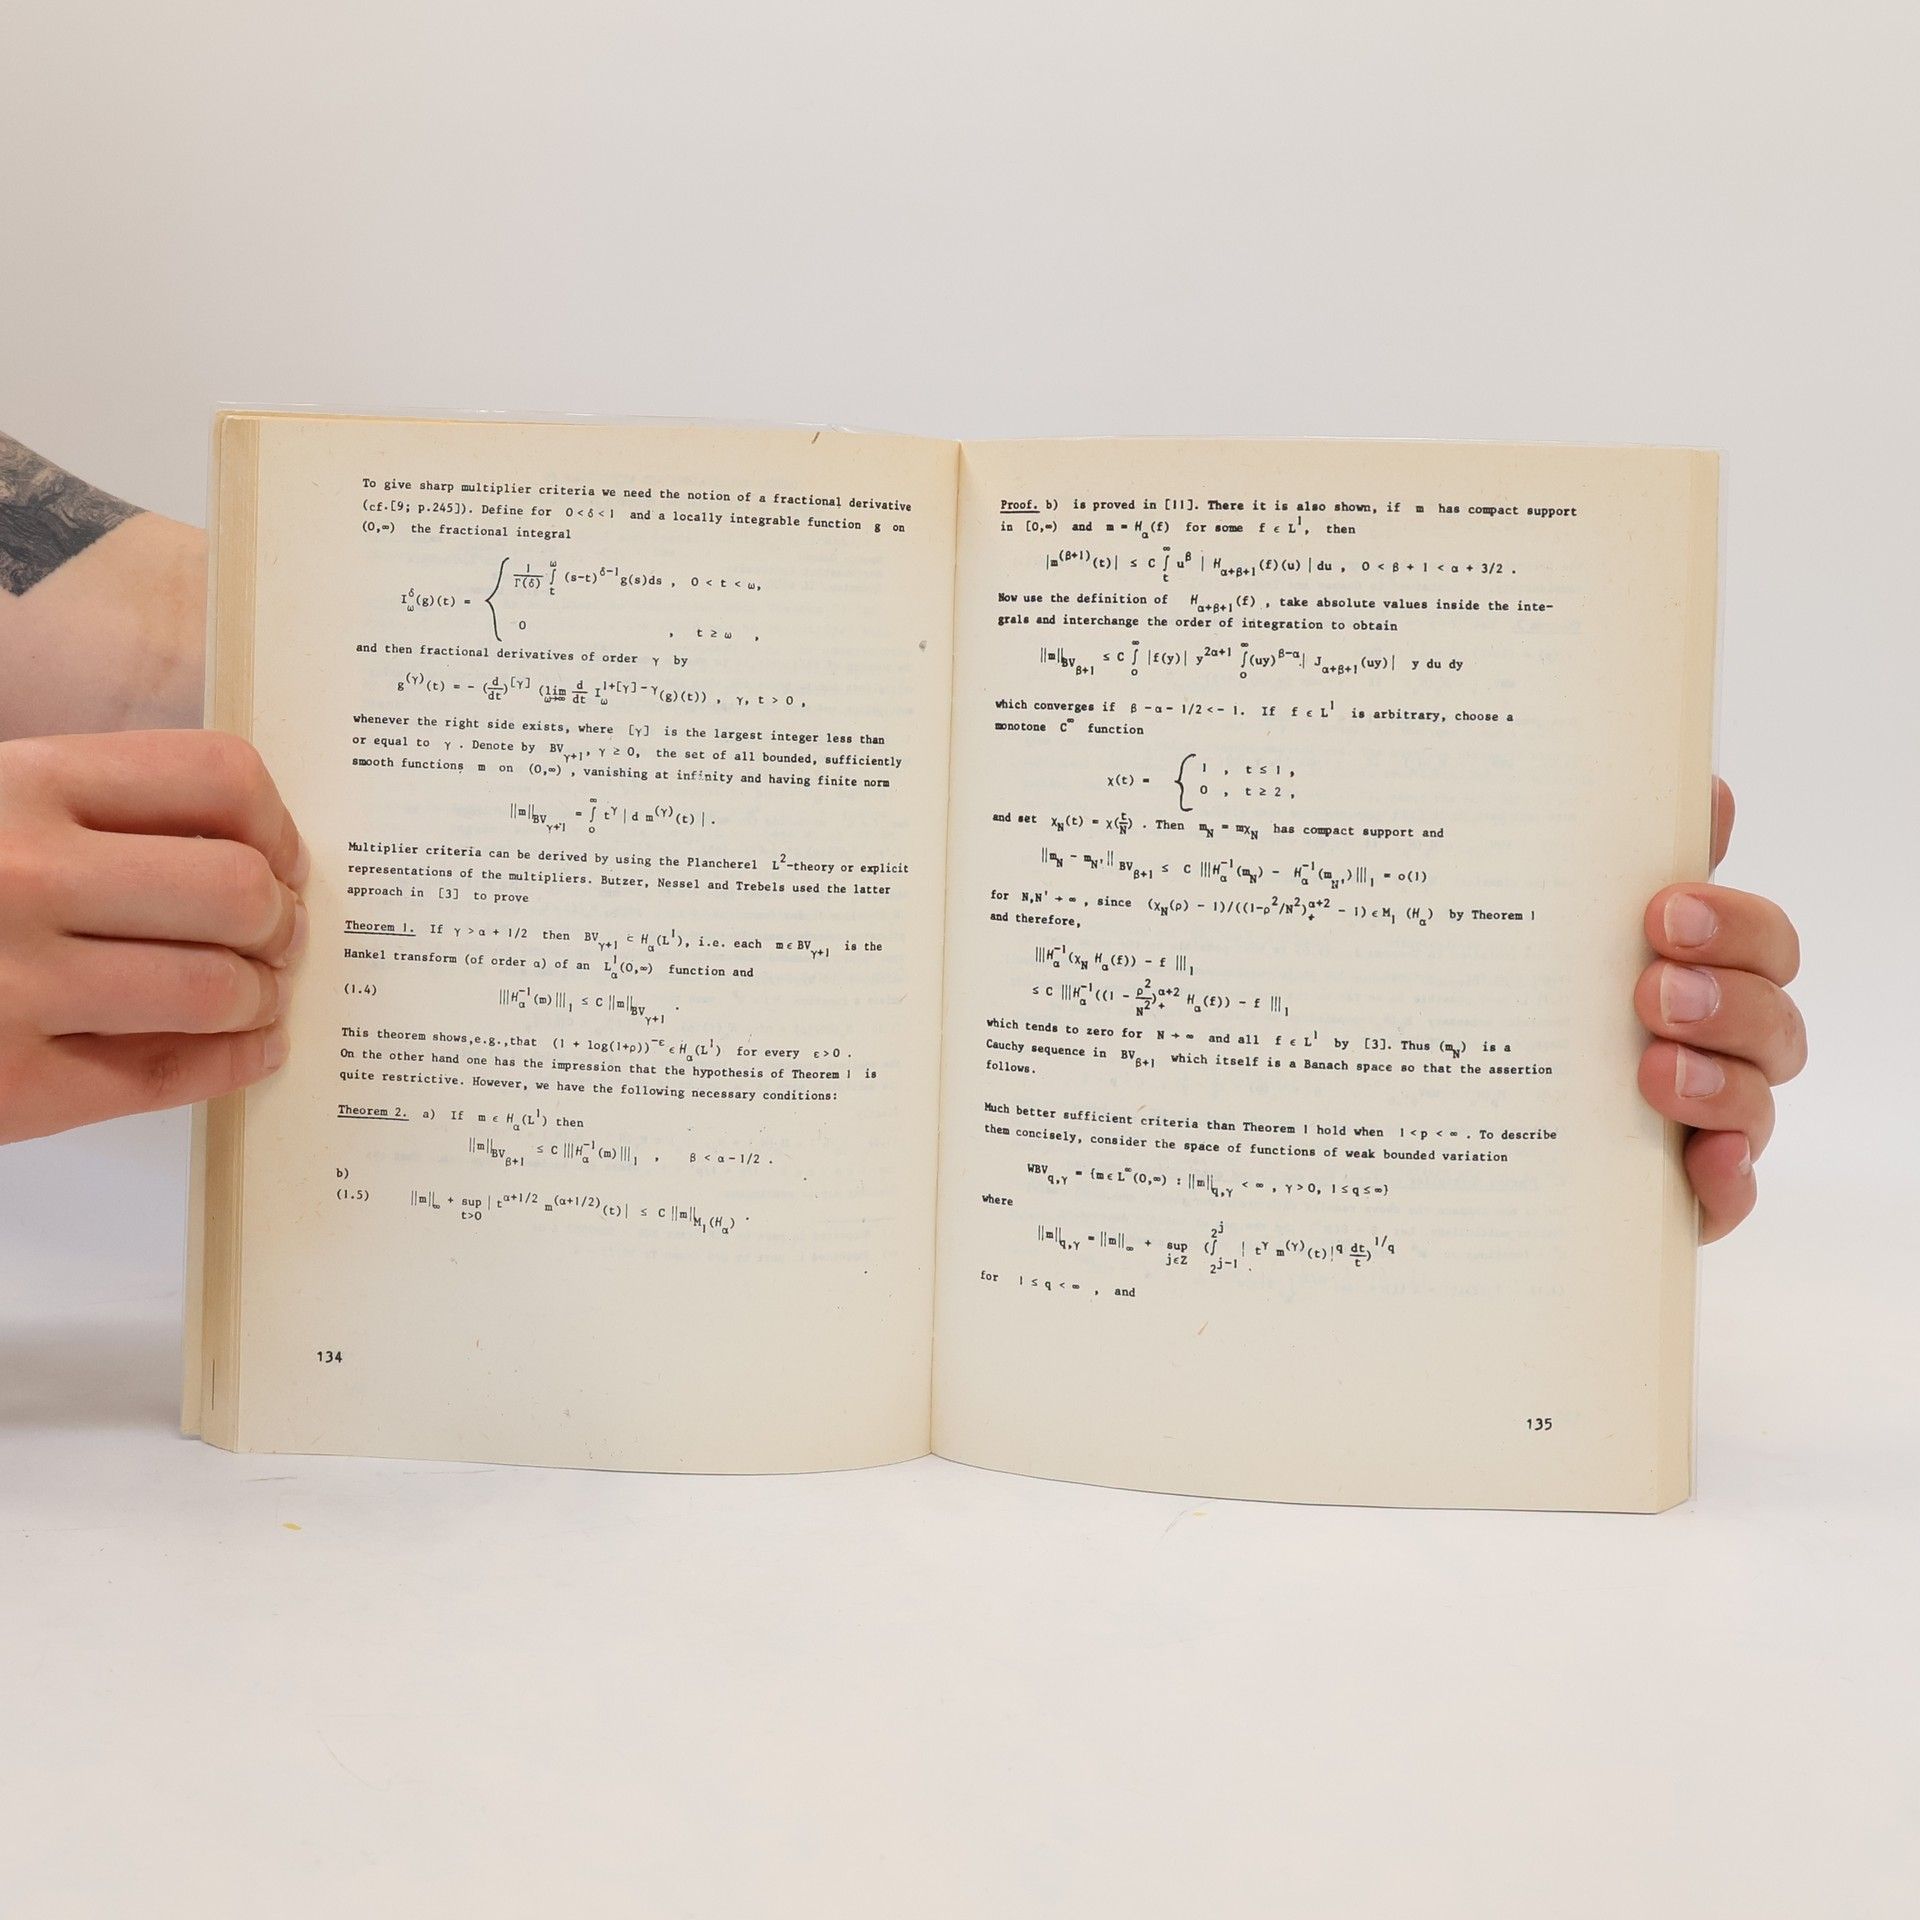 To give sharp multiplier criteria we need the notion of a fractional derivative
(cf.[9; p.245]). Define for 0 < δ < 1 and a locally integrable function g on
(0,∞) the fractional integral
I_ω^δ(g)(t) = { 1/Γ(δ) ∫_t^ω (s-t)^{δ-1} g(s)ds , 0 < t < ω,
0 , t ≥ ω ,
and then fractional derivatives of order γ by
g^{(γ)}(t) = - (d/dt)^{[γ]} (lim_{ω→∞} d/dt I_ω^{1+[γ]-γ}(g)(t)) , γ, t > 0 ,
whenever the right side exists, where [γ] is the largest integer less than
or equal to γ . Denote by BV_{γ+1}, γ ≥ 0, the set of all bounded, sufficiently
smooth functions m on (0,∞) , vanishing at infinity and having finite norm
||m||_{BV_{γ+1}} = ∫_0^∞ t^γ | d m^{(γ)}(t) | .
Multiplier criteria can be derived by using the Plancherel L^2-theory or explicit
representations of the multipliers. Butzer, Nessel and Trebels used the latter
approach in [3] to prove
Theorem 1. If γ > α + 1/2 then BV_{γ+1} ⊂ H_α(L^1), i.e. each m ∈ BV_{γ+1} is the
Hankel transform (of order α) of an L_α^1(0,∞) function and
(1.4) |||H_α^{-1}(m)|||_1 ≤ C ||m||_{BV_{γ+1}} .
This theorem shows,e.g.,that (1 + log(1+ρ))^{-ε} ∈ H_α(L^1) for every ε > 0 .
On the other hand one has the impression that the hypothesis of Theorem 1 is
quite restrictive. However, we have the following necessary conditions:
Theorem 2. a) If m ∈ H_α(L^1) then
||m||_{BV_{β+1}} ≤ C |||H_α^{-1}(m)|||_1 , β < α - 1/2 .
b)
(1.5) ||m||_∞ + sup_{t>0} | t^{α+1/2} m^{(α+1/2)}(t)| ≤ C ||m||_{M_1(H_α)} .
134
Proof. b) is proved in [11]. There it is also shown, if m has compact support
in [0,∞) and m = H_α(f) for some f ∈ L^1, then
|m^{(β+1)}(t)| ≤ C ∫_t^∞ u^β | H_{α+β+1}(f)(u) | du , 0 < β + 1 < α + 3/2 .
Now use the definition of H_{α+β+1}(f) , take absolute values inside the inte-
grals and interchange the order of integration to obtain
||m||_{BV_{β+1}} ≤ C ∫_0^∞ |f(y)| y^{2α+1} ∫_0^∞ (uy)^{β-α} | J_{α+β+1}(uy)| y du dy
which converges if β - α - 1/2 < - 1. If f ∈ L^1 is arbitrary, choose a
monotone C^∞ function
χ(t) = { 1 , t ≤ 1 ,
0 , t ≥ 2 ,
and set χ_N(t) = χ(t/N) . Then m_N = mχ_N has compact support and
||m_N - m_{N'}||_{BV_{β+1}} ≤ C |||H_α^{-1}(m_N) - H_α^{-1}(m_{N'})|||_1 = o(1)
for N,N' → ∞ , since (χ_N(ρ) - 1)/((1-ρ^2/N^2)_+^{α+2} - 1) ∈ M_1 (H_α) by Theorem 1
and therefore,
|||H_α^{-1}(χ_N H_α(f)) - f |||_1
≤ C |||H_α^{-1}((1 - ρ^2/N^2)_+^{α+2} H_α(f)) - f |||_1
which tends to zero for N → ∞ and all f ∈ L^1 by [3]. Thus (m_N) is a
Cauchy sequence in BV_{β+1} which itself is a Banach space so that the assertion
follows.
Much better sufficient criteria than Theorem 1 hold when 1 < p < ∞ . To describe
them concisely, consider the space of functions of weak bounded variation
WBV_{q,γ} = {m ∈ L^∞(0,∞) : ||m||_{q,γ} < ∞ , γ > 0, 1 ≤ q ≤ ∞}
where
||m||_{q,γ} = ||m||_∞ + sup_{j∈Z} (∫_{2^{j-1}}^{2^j} | t^γ m^{(γ)}(t)|^q dt/t)^{1/q}
for 1 ≤ q < ∞ , and
135